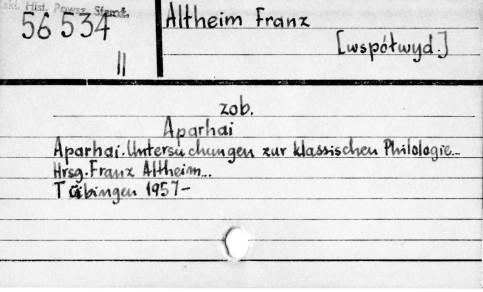 Zakł. Hist. Powsz. Staroż.
56 534
II
Altheim Franz
[współwyd.]
zob.
Aparhai
Aparhai. Untersuchungen zur klassischen Philologie...
Hrsg. Franz Altheim...
Tübingen 1957-